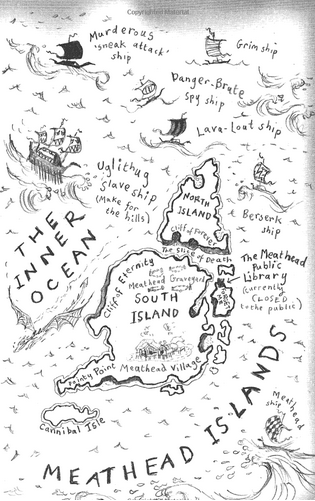 Copyrighted Material
Murderous
'sneak attack'
ship
Grim ship
Danger-Brute
spy ship
Lava-Lout ship
Uglithug
Slaveship
(Make for
the hills)
Berserk
ship
NORTH
ISLAND
Cliff of Forever
The Slice of Death
THE
INNER
OCEAN
Cliff of Eternity
Meathead Graveyard
SOUTH
ISLAND
The Meathead
Public
Library
(currently
CLOSED
to the public)
Pointy Point
Meathead Village
Cannibal Isle
Meathead
ship
MEATHEAD ISLANDS